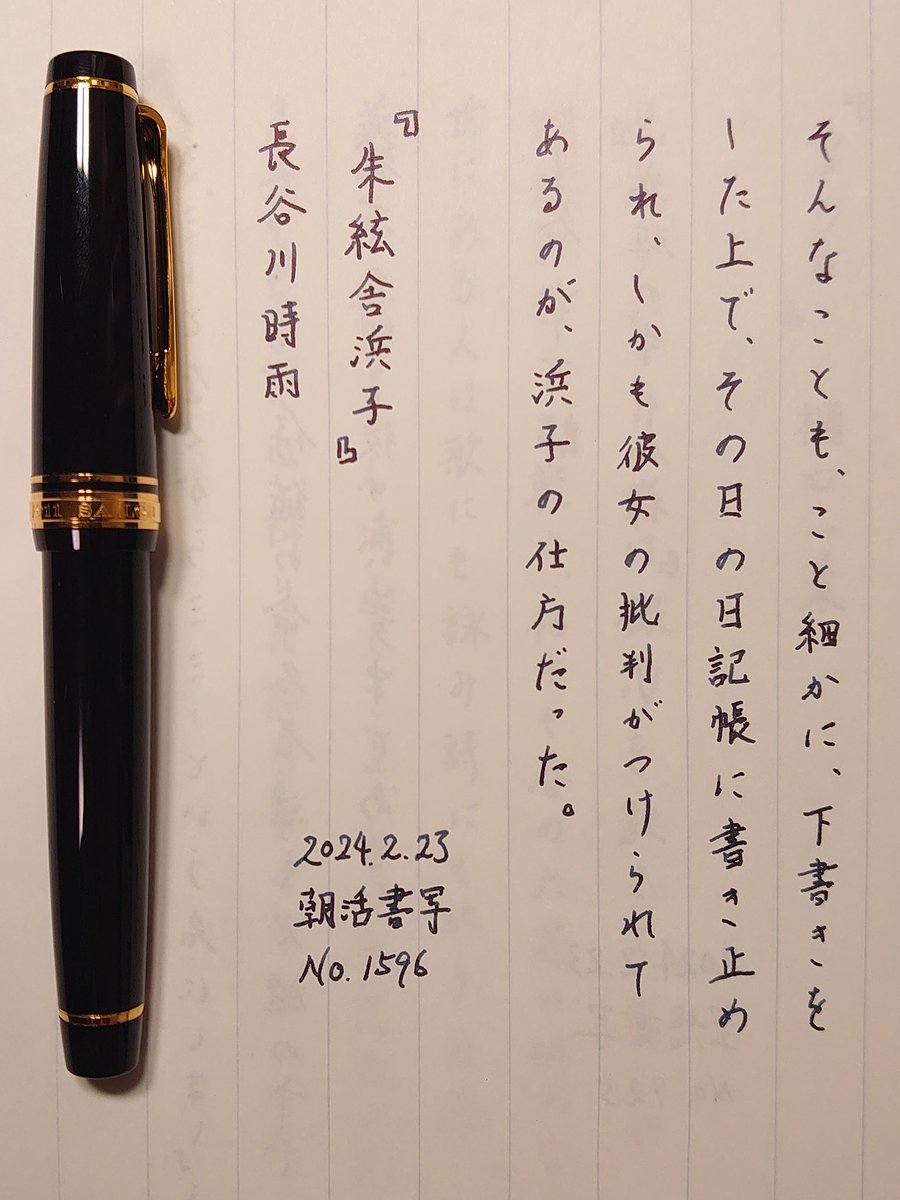 そんなことも、こと細かに、下書きを
した上で、その日の日記帳に書き止め
られ、しかも彼女の批判がつけられて
あるのが、浜子の仕方だった。
『朱絃舎浜子』
長谷川時雨
2024.2.23
朝活書写
No.1596